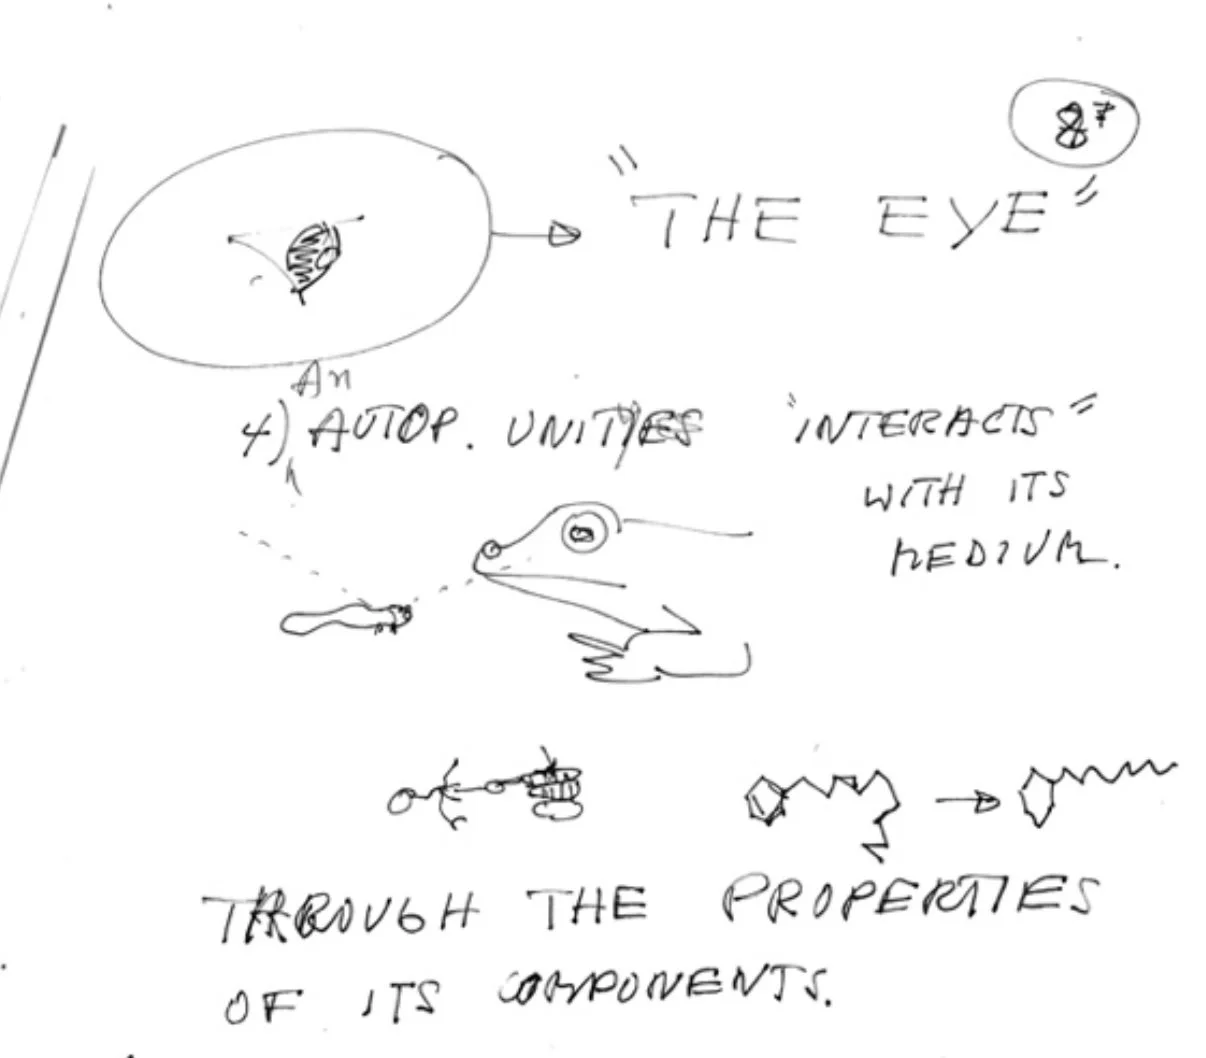 8
"THE EYE"
An
4) AUTOP. UNITIES "INTERACTS"
WITH ITS
MEDIUM.
THROUGH THE PROPERTIES
OF ITS COMPONENTS.